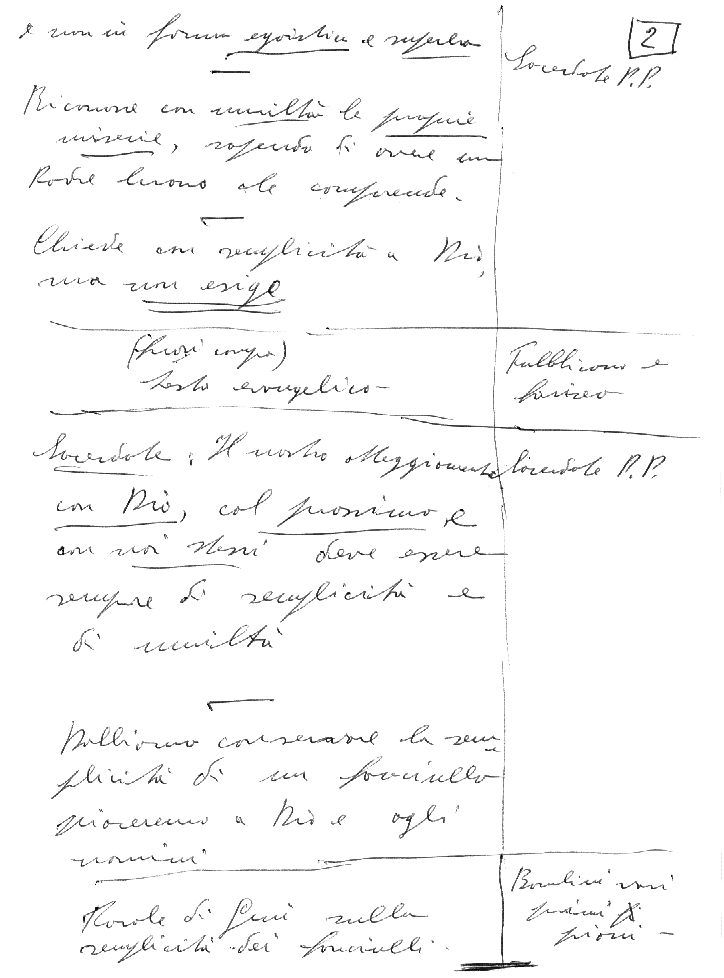 2
e non in forma egoistica e superba
Sacerdote P.P.
Riconosce con umiltà le proprie
miserie, sapendo di avere un
Padre buono che comprende.
Chiede con semplicità a Dio,
ma non esige
(fuori campo)
testo evangelico
Pubblicano e
fariseo
Sacerdote: Il nostro atteggiamento
Sacerdote P.P.
con Dio, col prossimo e
con noi stessi deve essere
sempre di semplicità e
di umiltà
Dobbiamo conservare la sem
plicità di un fanciullo
piaceremo a Dio e agli
uomini
Bambini vari
primi
piani
Parole di Gesù sulla
semplicità dei fanciulli.